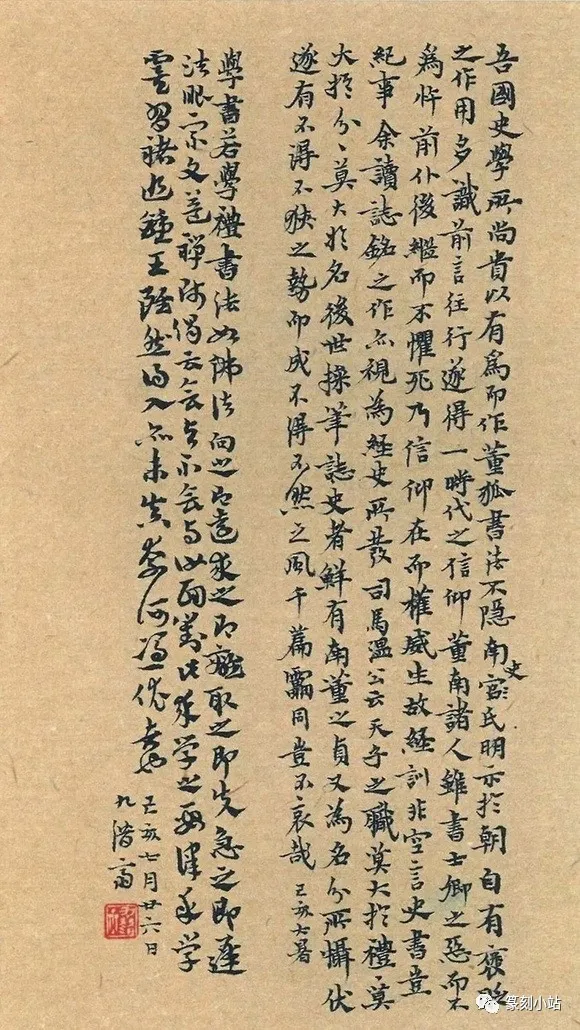 吾國史學所尚貴以有為而作董狐書法不隱南史氏明示於朝自有褒貶
之作用多識前言往行遂得一時代之信仰董南諸人雖書士卿之惡而不
為忤前仆後繼而不懼死乃信仰在而權威生故經訓非空言史書豈
紀事余讀誌銘之作亦視為經史所發司馬溫公云天子之職莫大於禮禮莫
大於分分莫大於名後世操筆誌史者鮮有南董之貞又為名分所懾伏
遂有不得不狹之勢而成不得不然之風千篇雷同豈不哀哉 己亥大暑
學書若學禮書法如佛法向之即遠求之即離取之即失急之即遲
法眼宗文益禪師偈云會與不會與汝面對 學之 學
習褚追鍾王雖然得入亦未 奈何
己亥七月廿六日
九潛齋
篆刻小站